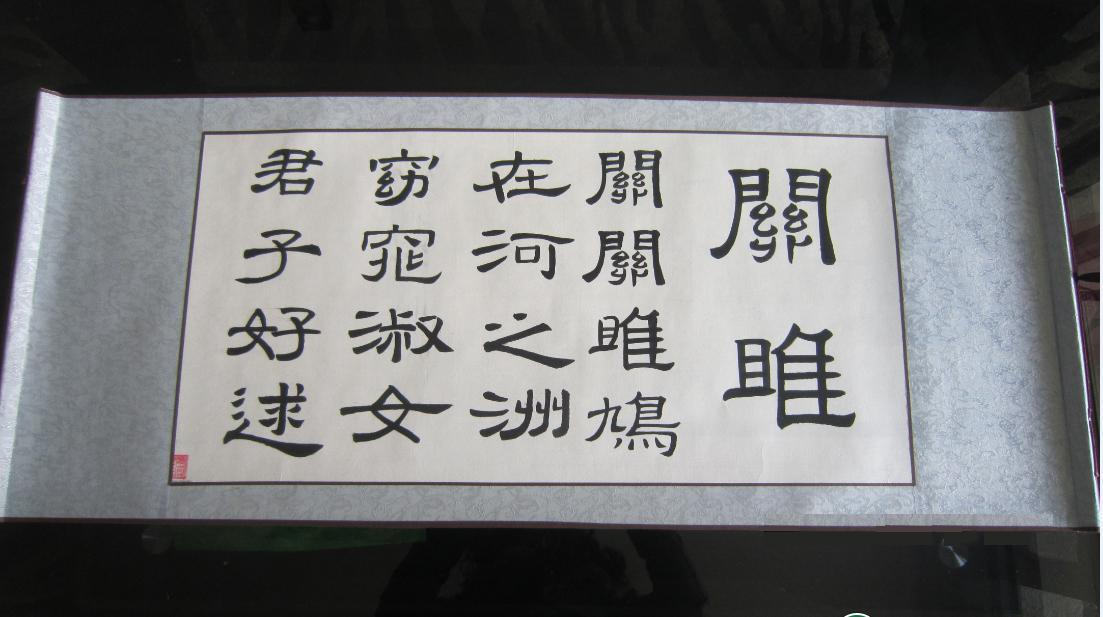 關雎
關關雎鳩
在河之洲
窈窕淑女
君子好逑